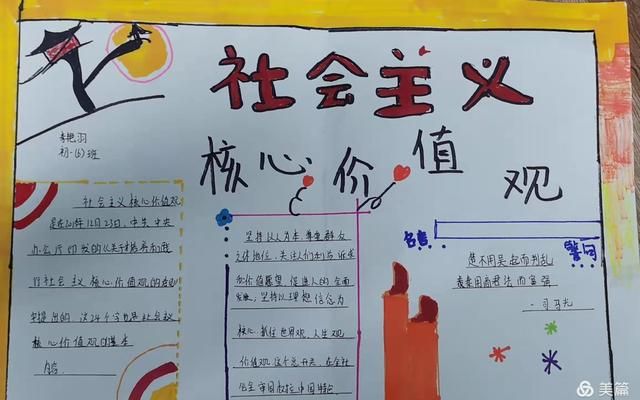 社会主义
核心价值观
初一(6)班
社会主义核心价值观
是在2013年12月23日,中共中央
办公厅印发的《关于培育和践
行社会主义核心价值观的
提出的,这24个字是社会主义
核心价值观的基本
内容。
坚持以人为本,尊重群众
主体地位,关注人们利益诉求
和价值愿望促进人的全面
发展;坚持以理想信念为
核心,抓住世界观,人生观
价值观这个总开关,在全社
会牢固树立中国特色
名言
警句
楚不用吴起而削乱
秦用商君法而富强
——司马光
美篇